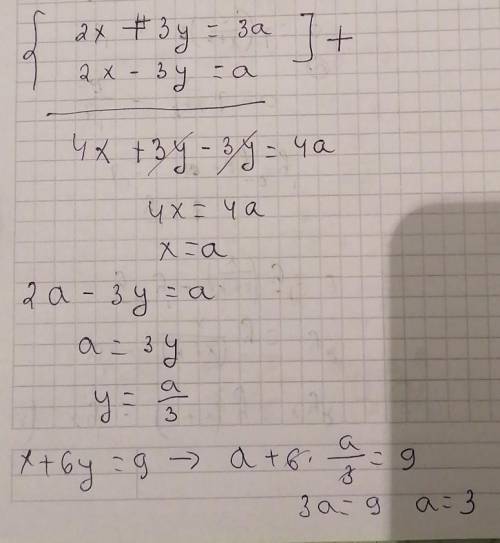 { 2x + 3y = 3a ] +
2x - 3y = a
4x + 3y - 3y = 4a
4x = 4a
x = a
2a - 3y = a
a = 3y
y = a/3
x + 6y = 9 → a + 6 · a/3 = 9
3a = 9 a = 3